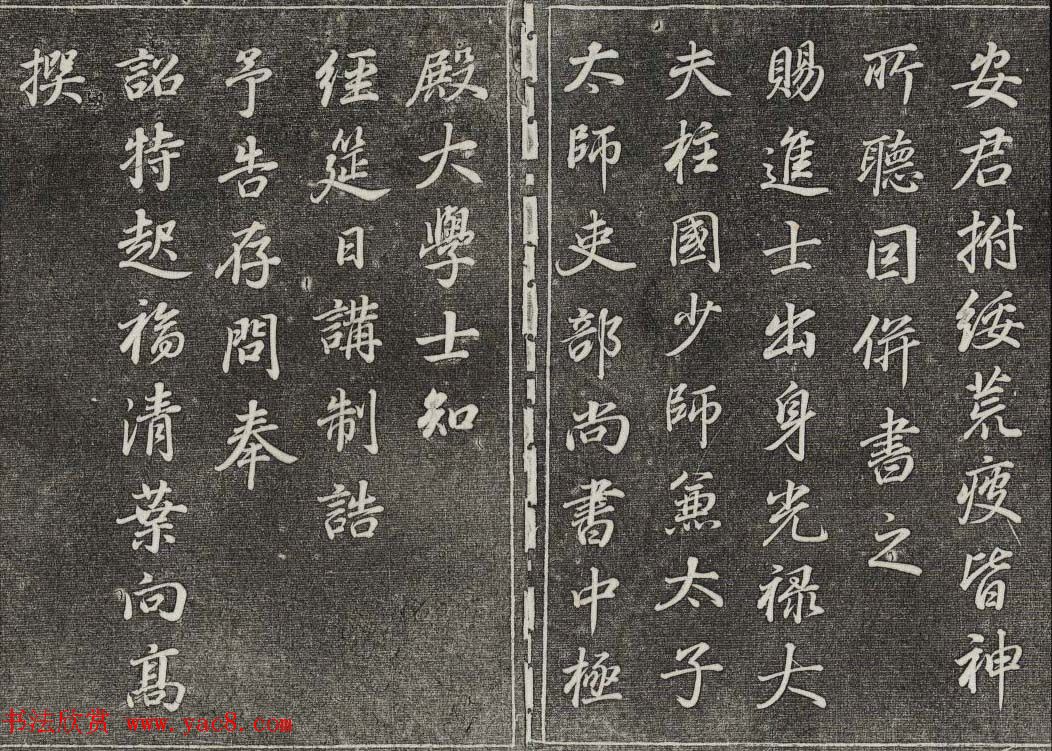 安君拊綏荒瘦皆神
所聽因併書之
賜進士出身光祿大
夫柱國少師兼太子
太師吏部尚書中極
殿大學士知
經筵日講制誥
予告存問奉
詔特起福清葉向高
撰
书法欣赏 www.yac8.com